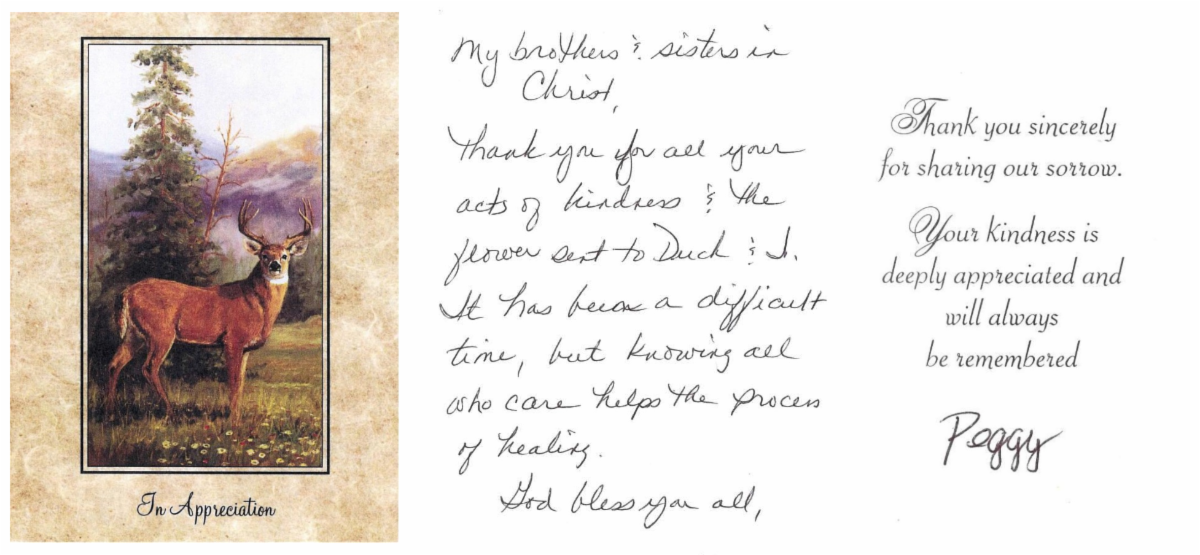 In Appreciation
My brothers & sisters in
Christ,
Thank you for all your
acts of kindness & the
flower sent to Duck & I.
It has been a difficult
time, but knowing all
who care helps the process
of healing.
God bless you all,
Thank you sincerely
for sharing our sorrow.
Your kindness is
deeply appreciated and
will always
be remembered
Peggy